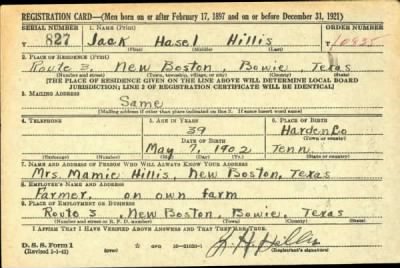 REGISTRATION CARD—(Men born on or after February 17, 1897 and on or before December 31, 1921)
SERIAL NUMBER 1. NAME (Print) ORDER NUMBER
827 Jack Hasel Hillis 10925
(First) (Middle) (Last)
2. PLACE OF RESIDENCE (Print)
Route 3, New Boston, Bowie, Texas
(Number and street) (Town, township, village, or city) (County) (State)
[THE PLACE OF RESIDENCE GIVEN ON THE LINE ABOVE WILL DETERMINE LOCAL BOARD
JURISDICTION; LINE 2 OF REGISTRATION CERTIFICATE WILL BE IDENTICAL]
3. MAILING ADDRESS
Same
[Mailing address if other than place indicated on line 2. If same insert word same]
4. TELEPHONE 5. AGE IN YEARS 6. PLACE OF BIRTH
39 Harden Co
DATE OF BIRTH (Town or county)
May 7, 1902 Tenn.
(Exchange) (Number) (Mo.) (Day) (Yr.) (State or country)
7. NAME AND ADDRESS OF PERSON WHO WILL ALWAYS KNOW YOUR ADDRESS
Mrs. Mamie Hillis, New Boston, Texas
8. EMPLOYER'S NAME AND ADDRESS
Farmer, on own farm
9. PLACE OF EMPLOYMENT OR BUSINESS
Route 3, New Boston, Bowie, Texas
(Number and street or R. F. D. number) (Town) (County) (State)
I AFFIRM THAT I HAVE VERIFIED ABOVE ANSWERS AND THAT THEY ARE TRUE.
D. S. S. Form 1 GPO 16—21630-1 Hillis
(Registrant's signature)